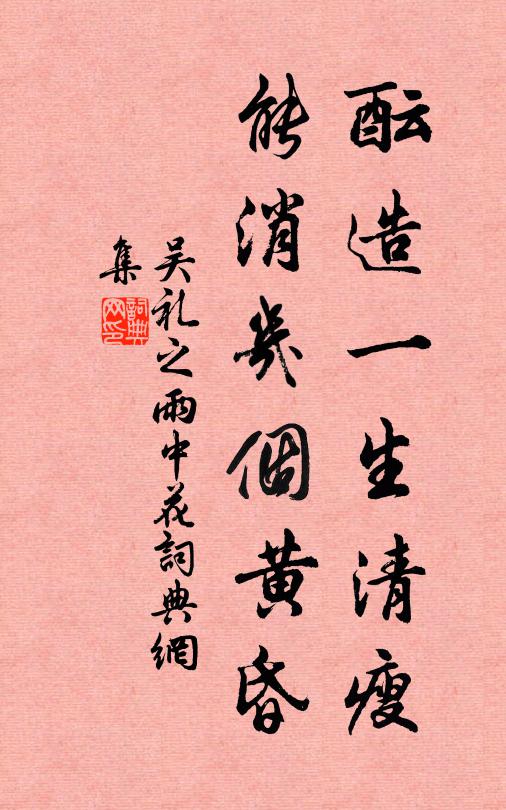 醞造一生清瘦
能消幾個黃昏
吴礼之雨中花詞典網
集
詞典網印